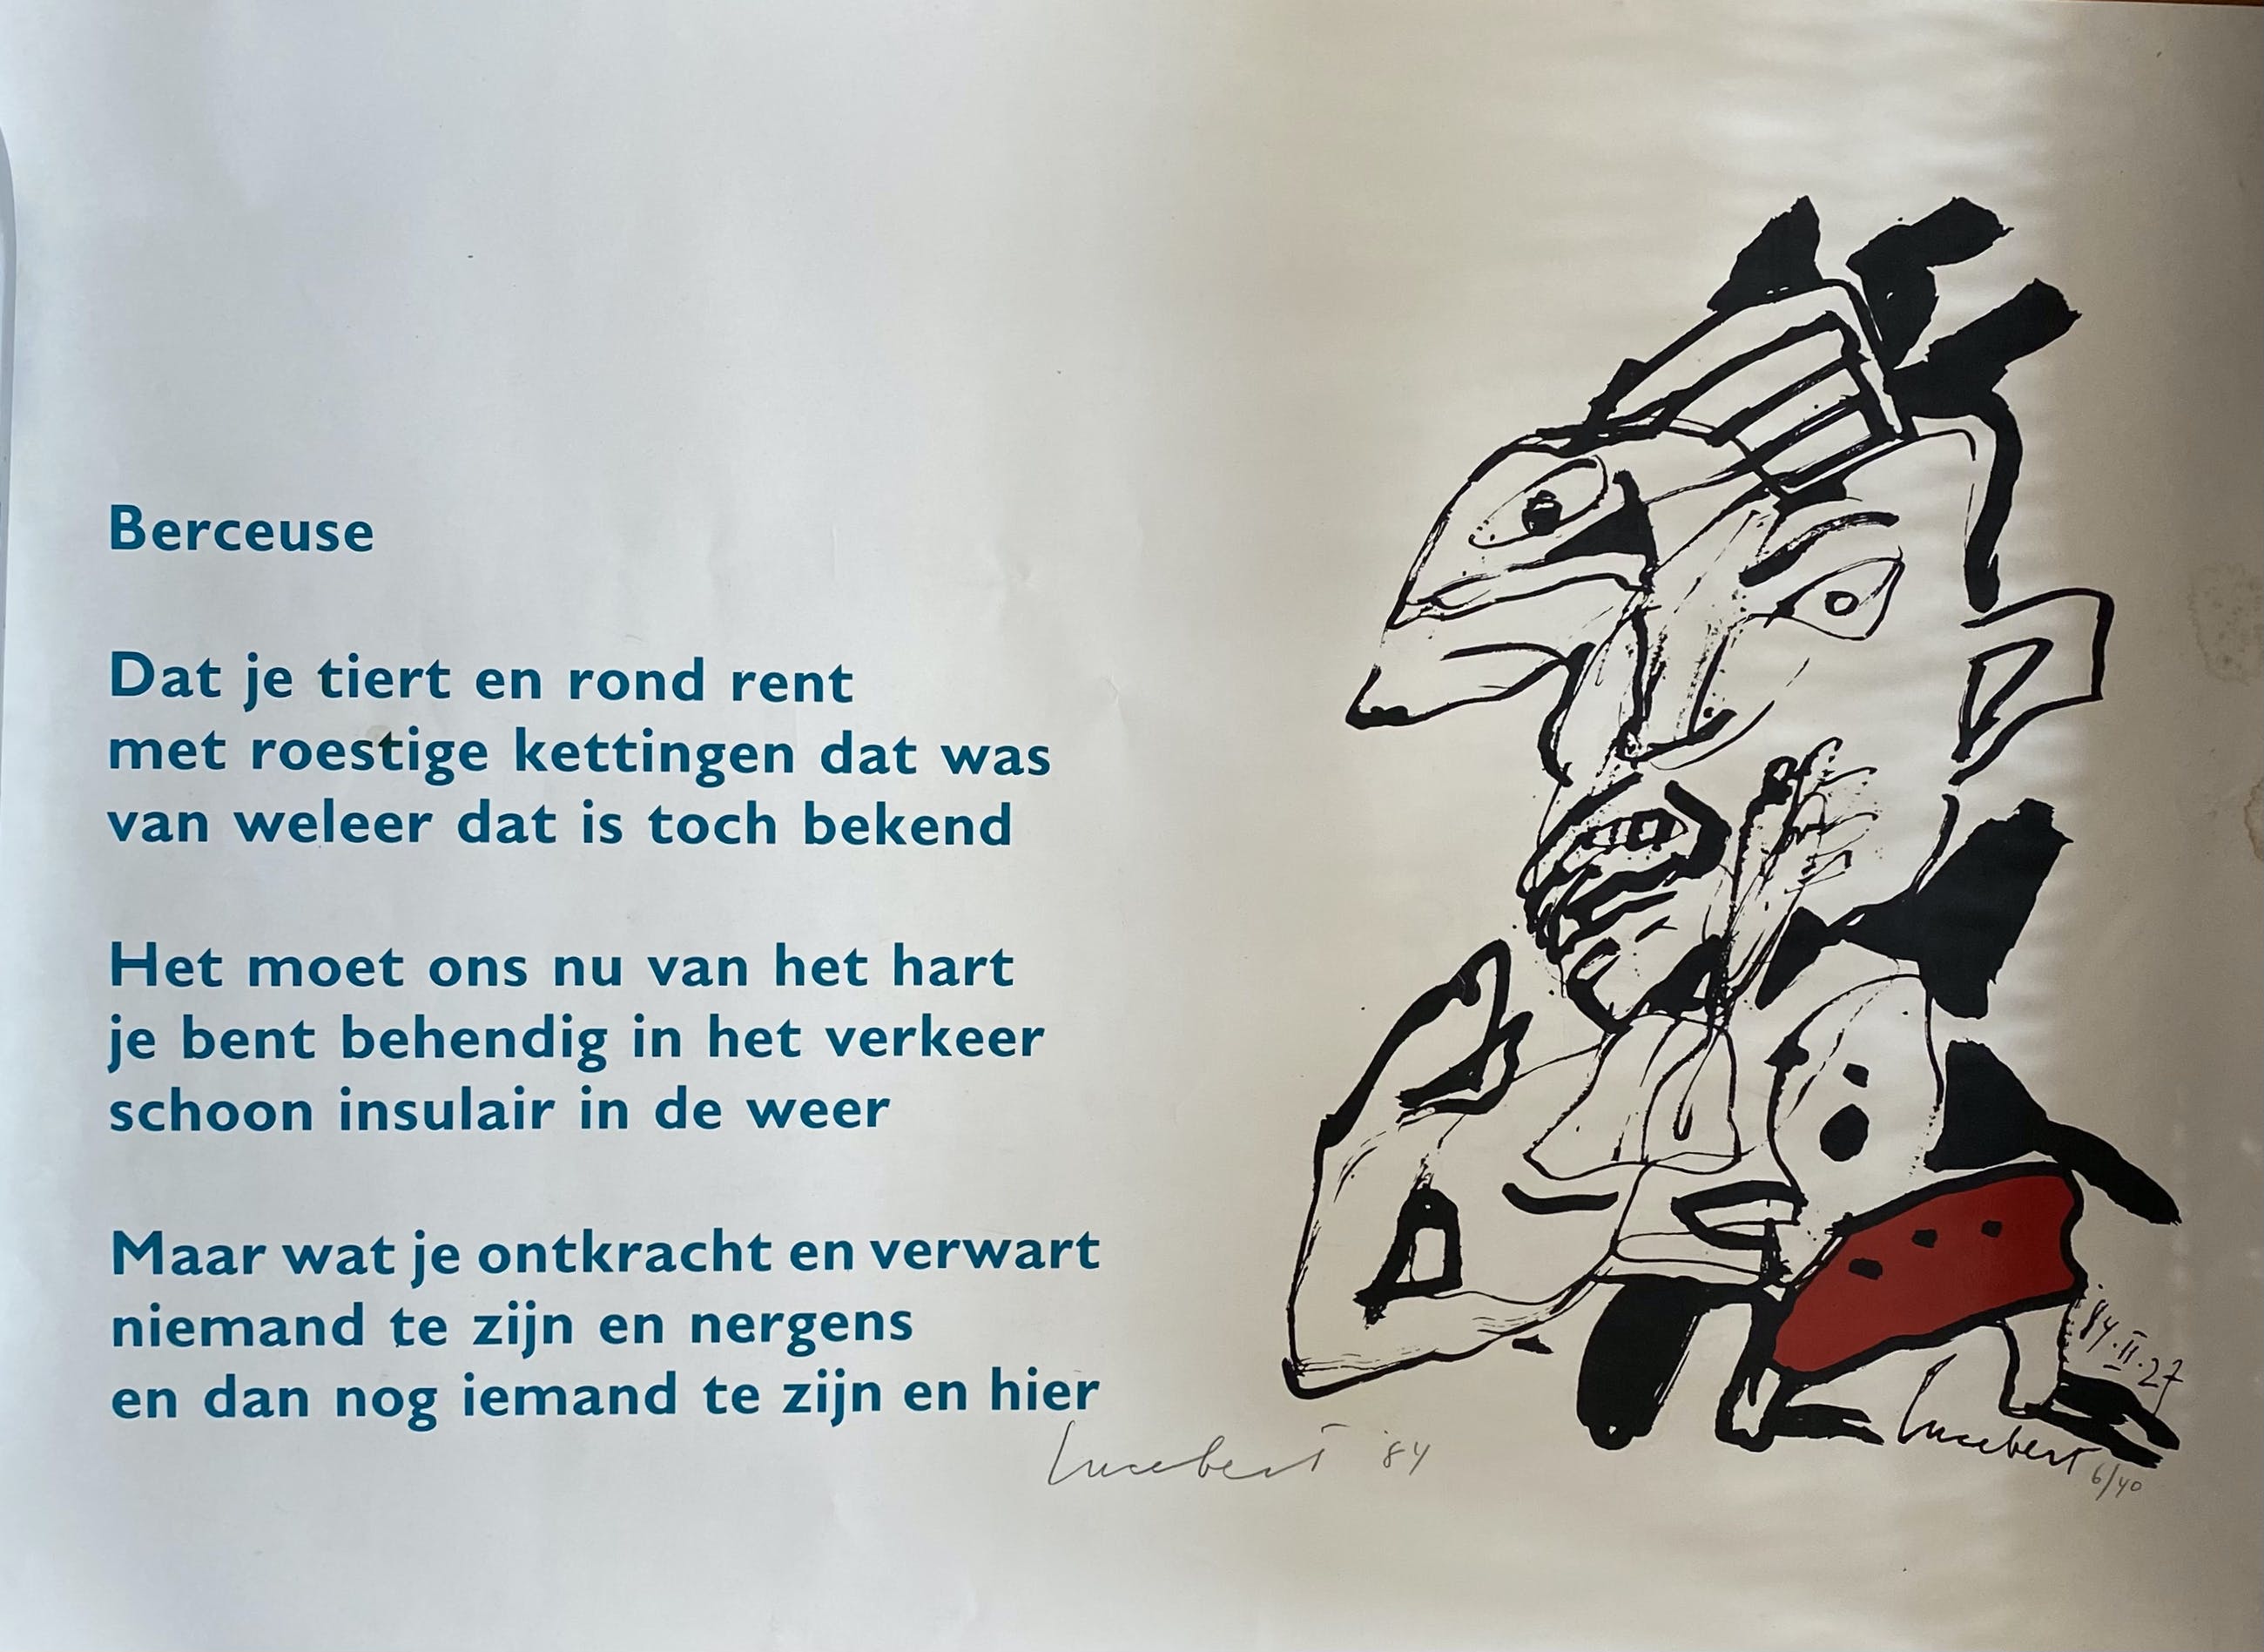 Berceuse
Dat je tiert en rond rent
met roestige kettingen dat was
van weleer dat is toch bekend
Het moet ons nu van het hart
je bent behendig in het verkeer
schoon insulair in de weer
Maar wat je ontkracht en verwart
niemand te zijn en nergens
en dan nog iemand te zijn en hier
Lucebert '84
'84.II.27
Lucebert
6/40